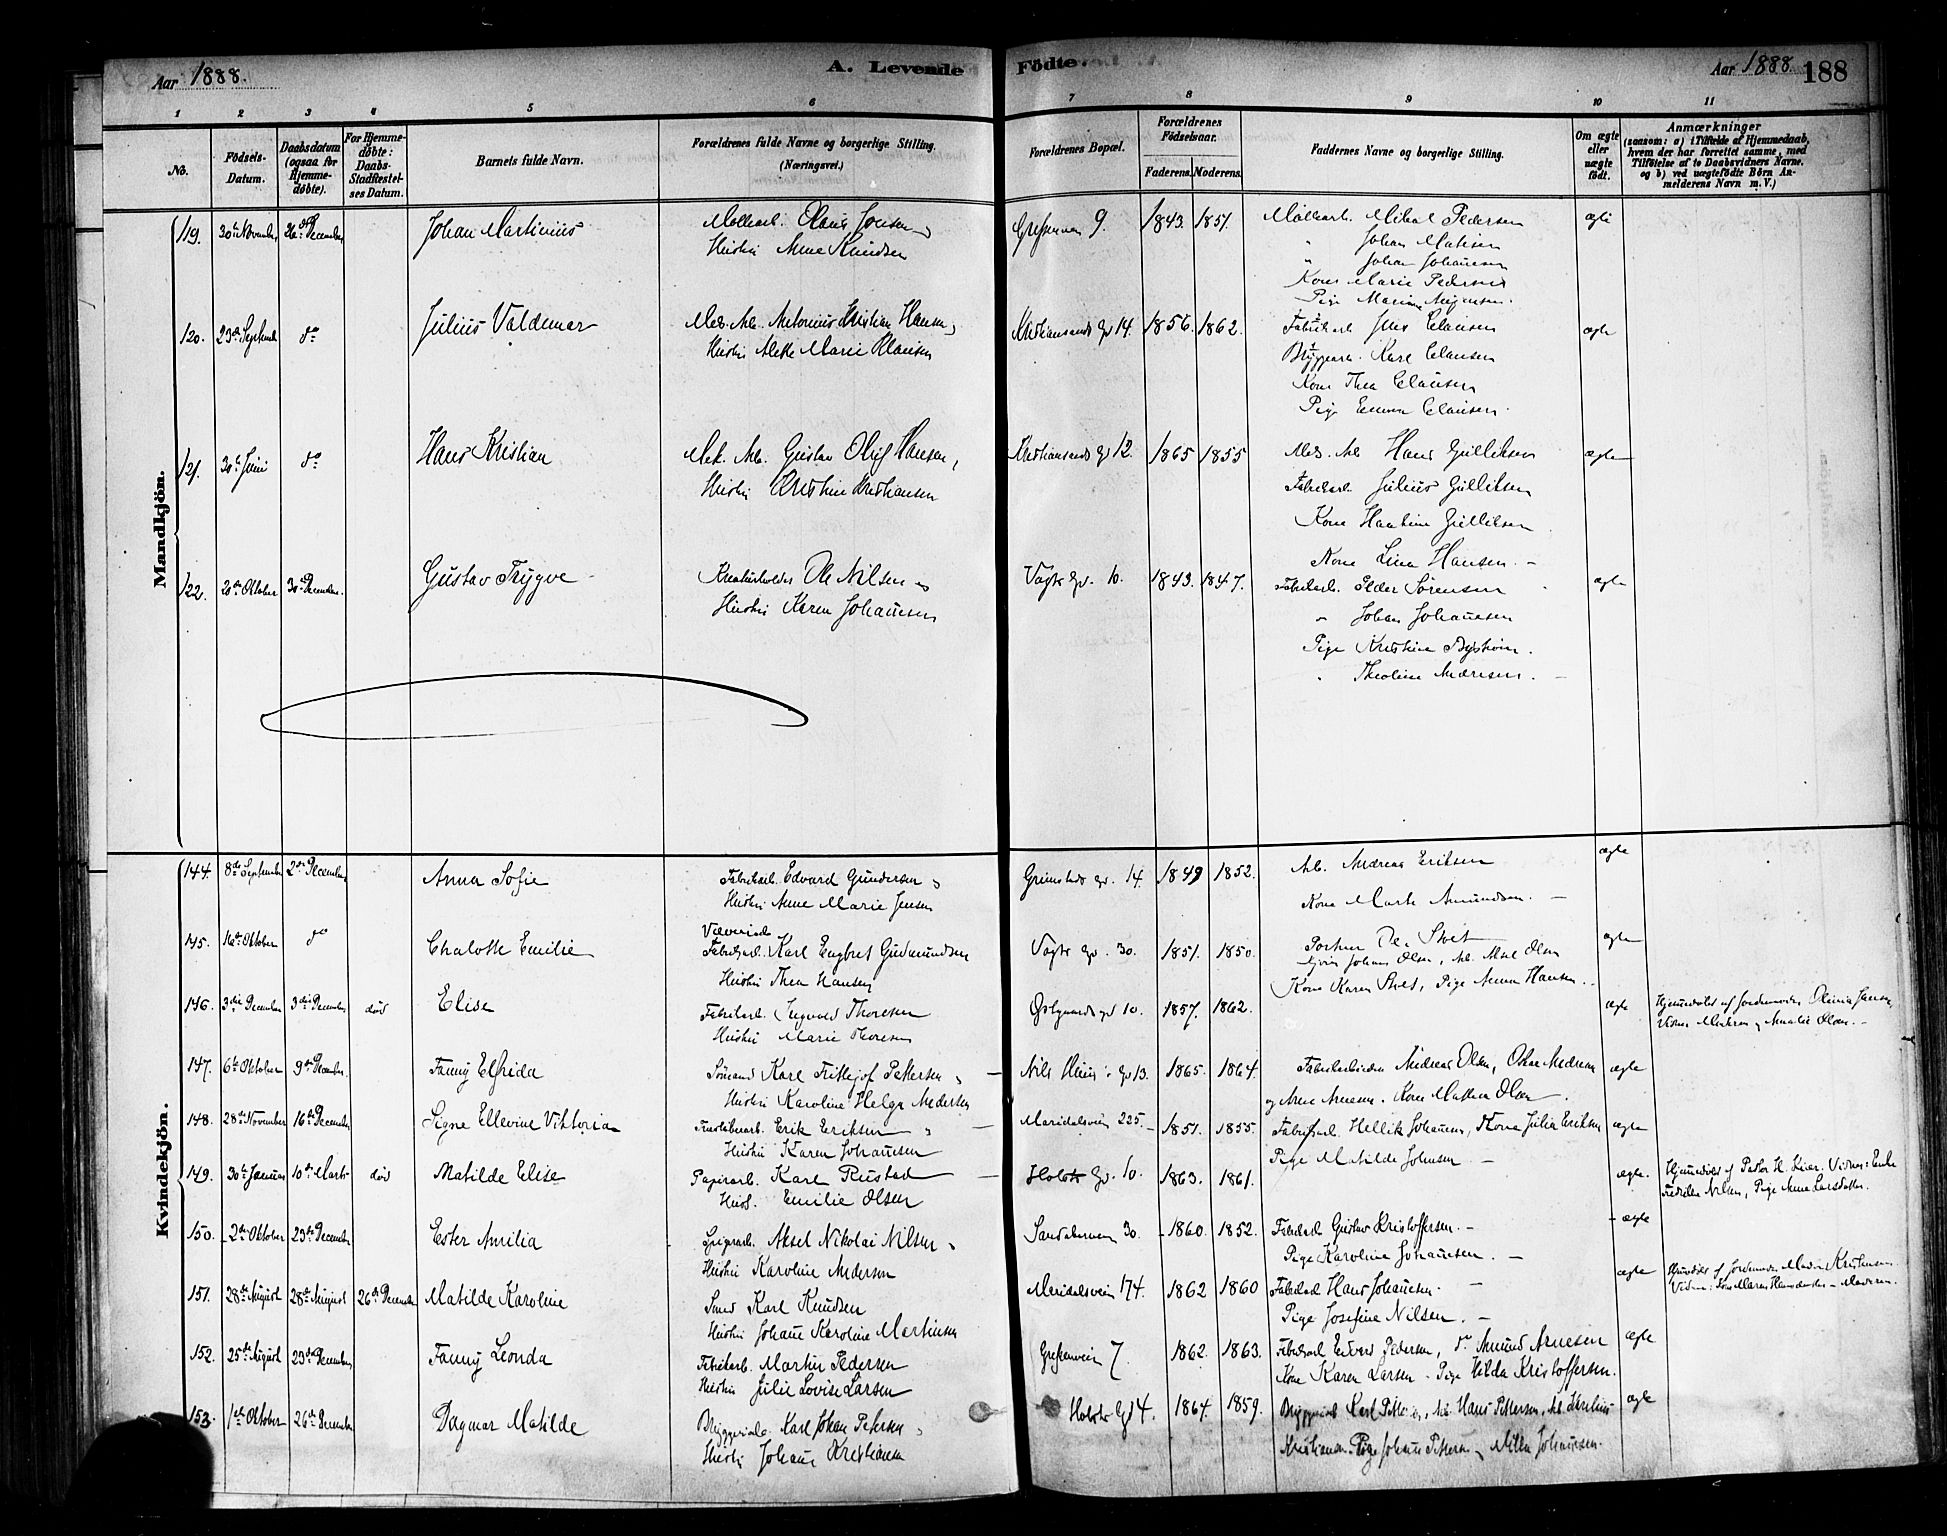 Aar 1888.
A. Levende Födte.
Aar 1888. 188
1 2 3 4 5 6 7 8 9 10 11
No.
Födsels-Datum.
Daabsdatum (ogsaa for Hjemme-döbte).
For Hjemme-döbte: Daabs-Stadfæstel-ses Datum.
Barnets fulde Navn.
Forældrenes fulde Navne og borgerlige Stilling. (Næringsvei.)
Forældrenes Bopæl.
Forældrenes Födselsaar.
Faderens. Moderens.
Faddernes Navne og borgerlige Stilling.
Om ægte eller uægte födt.
Anmærkninger
(saasom: a) i Tilfælde af Hjemmedaab, hvem der har forrettet samme, med Tilföielse af to Daabsvidners Navne. og b) ved uægtefödte Börn An-melderens Navn m. V.)
Mandkjön.
119. 30te November 26de December Johan Martinius Møllearb. Olaus Jonsen Grefsenveien 9. 1843. 1851. Møllearb. Mikal Pedersen ægte
Hustru Anne Knudsen " Johan Madsen
" Johan Johansen
Kone Marie Pedersen
Pige
120. 23de Septemb. do Julius Valdemar Mek. Arb. Antonius Kristian Hansen Kristiansands Gd 14. 1856. 1862. Fabrikarb. Jens Clausen ægte
Hustru Alette Marie Klausen Bryggearb. Karl Clausen
Kone Thea Clausen
Pige Emma Clausen.
121. 30te Juni do Hans Kristian Mek. Arb. Gustav Oluf Hansen, Kristiansands Gd 12. 1865 1855 Mek. Arb Hans Gulliksen ægte
Hustru Kristine Kristiansen Fabrikarb. Julius Gulliksen
Kone Hantine Gulliksen
Kone Lina Hansen.
122. 20de Oktober 30te December. Gustav Trygve Kreaturholder Ole Nilsen Vogts Gd. 10. 1843. 1847. Fabrikarb. Peder Sørensen ægte
Hustru Karen Johansen " Johan Johansen
Pige Kristine Bystrøm.
" Theoline Andresen.
Kvindekjön.
144. 8de September 2den December Anna Sofie Fabrikarb. Edvard Gundersen Grimstads gd. 14. 1849 1852. Arb. Andreas Eriksen ægte
Hustru Anne Marie Jensen Kone Marte Amundsen.
145. 16de Oktober do Chalotte Emilie Væveriarb.
Fabrikarb. Karl Engbret Gudmundsen Vogts gd. 30. 1851. 1850. Portner Ole Stvet ægte
Hustru Thea Hansen Johan Olsen, Arb. Aksel Olsen
Kone Karen Stvet, Pige Anna Hansen.
146. 3die December 3die December død Elise Fabrikarb. Ingvald Thoresen Østgaards gd 10. 1857. 1862. ægte Hjemmedøbt af Jordemoder Olivia Jansen
Hustru Marie Thoresen Vidner Moderen og Amalie Olsen.
147. 6te Oktober 9de December. Fanny Elfrida Sømand Karl Fritiof Pettersen Nils Huus's Gd 13. 1865. 1864. Fabrikarbeiderne Andreas Olsen, Oskar Andresen ægte
Hustru Karoline Helga Andersen og Arne Arnesen. Kone Mathea Olsen.
148. 28de November 16de December Signe Ellevine Viktoria Erik Eriksen Maridalsveien 225. 1851. 1855. Fabrikarb. Hellik Johansen, Kone Julia Eriksen ægte
Hustru Karen Johansen Pige Matilde Johnsen.
149. 30te Januar 10de Marts død Matilde Elise Papirarb. Karl Rustad Holsts Gd. 10. 1863. 1861. ægte. Hjemmedøbt af Pastor H. Kiær. Vidner: Enke
Hust. Emilie Olsen Fredrikke Nilsen, Pige Anne Larsdatter.
150. 2den Oktober 23de December Ester Amilia Spigerarb. Aksel Nikolai Nilsen Sandakerveien 30. 1860. 1852. Fabrikarb Gustav Kristoffersen. ægte
Hustru Karoline Andersen Pige Karoline Johansen.
151. 28de August 28de August 26de December Matilde Karoline Smed Karl Knudsen Maridalsveien 174. 1862 1860 Fabrikarb Hans Johansen. ægte Hjemmedøbt af Jordemoder
Hustru Johane Karoline Martinsen Pige Josefine Nilsen.
152. 25de August 23de December Fanny Leonda Fabrikarb. Martin Pedersen Grefsenveien 7. 1862. 1863. Fabrikarb Edvard Pedersen, do Amund Arnesen ægte
Hustru Julie Lovise Larsen Kone Karen Larsen. Pige Hilda Kristoffersen.
153. 1ste Oktober 26de December Dagmar Matilde Bryggeriarb. Karl Johan Petersen Holsts Gd 4. 1864. 1859. Bryggeriarb Karl Pettersen, Arb. Hans Pettersen, Arb. ægte
Hustru Johane Kristiansen Kristiansen. Pige Johane Pettersen, Milla Johansen.